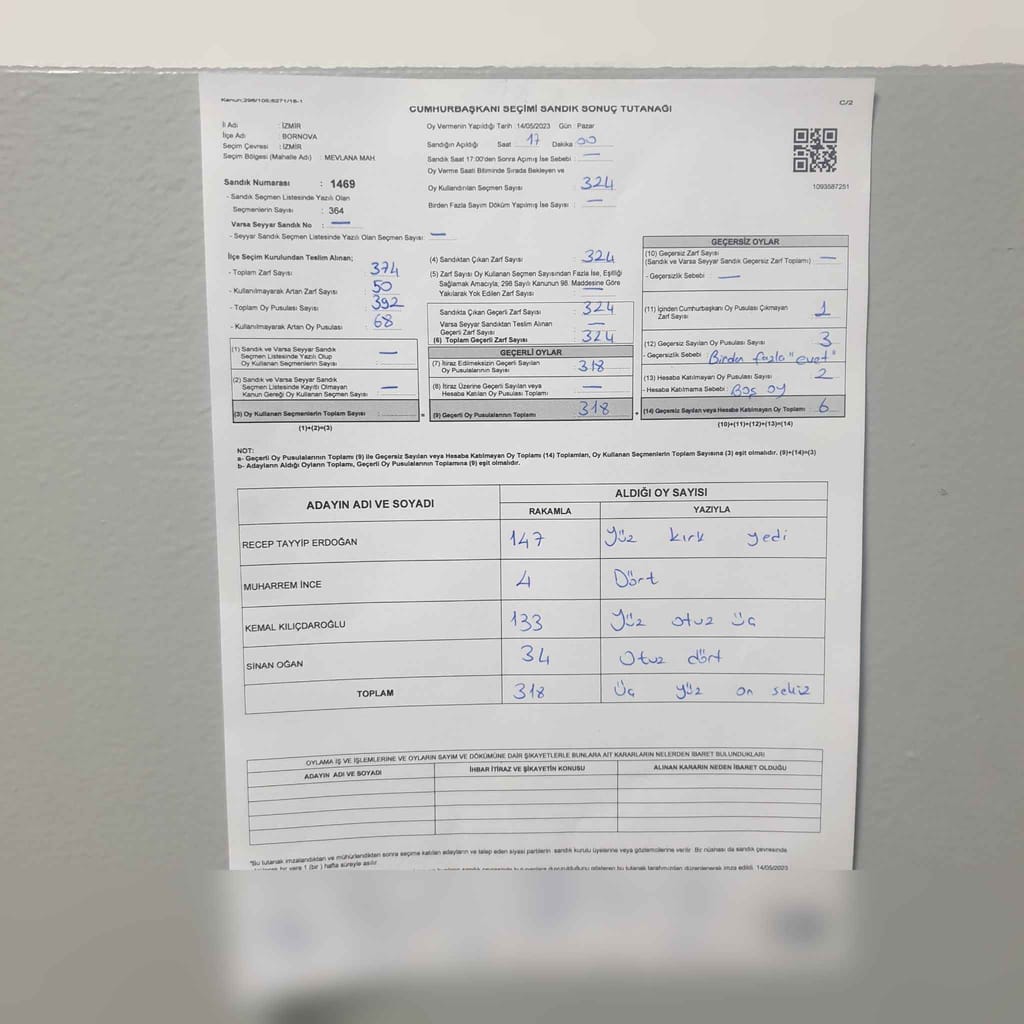 Kanun:298/105;6271/18-1
C/2
CUMHURBAŞKANI SEÇİMİ SANDIK SONUÇ TUTANAĞI
İl Adı : İZMİR
İlçe Adı : BORNOVA
Seçim Çevresi : İZMİR
Seçim Bölgesi (Mahalle Adı) : MEVLANA MAH.
Sandık Numarası : 1469
- Sandık Seçmen Listesinde Yazılı Olan
Seçmenlerin Sayısı : 364
Varsa Seyyar Sandık No : —
- Seyyar Sandık Seçmen Listesinde Yazılı Olan Seçmen Sayısı: —
Oy Vermenin Yapıldığı Tarih :14/05/2023 Gün : Pazar
Sandığın Açıldığı Saat : 17 Dakika : 00
Sandık Saat 17:00'den Sonra Açımış İse Sebebi : —
Oy Verme Saati Bitiminde Sırada Bekleyen ve
Oy Kullandırılan Seçmen Sayısı : 324
Birden Fazla Sayım Döküm Yapılmış İse Sayısı : —
1093587251
İlçe Seçim Kurulundan Teslim Alınan;
- Toplam Zarf Sayısı : 374
- Kullanılmayarak Artan Zarf Sayısı : 50
- Toplam Oy Pusulası Sayısı : 392
- Kullanılmayarak Artan Oy Pusulası : 68
(1) Sandık ve Varsa Seyyar Sandık
Seçmen Listesinde Yazılı Olup
Oy Kullanan Seçmenlerin Sayısı : —
(2) Sandık ve Varsa Seyyar Sandık
Seçmen Listesinde Kayıtlı Olmayan
Kanun Gereği Oy Kullanan Seçmen Sayısı : —
(3) Oy Kullanan Seçmenlerin Toplam Sayısı :
(1)+(2)=(3)
(4) Sandıktan Çıkan Zarf Sayısı : 324
(5) Zarf Sayısı Oy Kullanan Seçmen Sayısından Fazla İse, Eşitliği
Sağlamak Amacıyla; 298 Sayılı Kanunun 98. Maddesine Göre
Yakılarak Yok Edilen Zarf Sayısı : —
Sandıkta Çıkan Geçerli Zarf Sayısı : 324
Varsa Seyyar Sandıktan Teslim Alınan
Geçerli Zarf Sayısı : —
(6) Toplam Geçerli Zarf Sayısı : 324
GEÇERLİ OYLAR
(7) İtiraz Edilmeksizin Geçerli Sayılan
Oy Pusulasının Sayısı : 318
(8) İtiraz Üzerine Geçerli Sayılan veya
Hesaba Katılan Oy Pusulası Toplamı : —
(9) Geçerli Oy Pusulalarının Toplamı : 318
GEÇERSİZ OYLAR
(10) Geçersiz Zarf Sayısı
(Sandık ve Varsa Seyyar Sandık Geçersiz Zarf Toplamı) : —
- Geçersizlik Sebebi : —
(11) İçinden Cumhurbaşkanı Oy Pusulası Çıkmayan
Zarf Sayısı : 1
(12) Geçersiz Sayılan Oy Pusulası Sayısı : 3
- Geçersizlik Sebebi : Birden fazla "evet"
(13) Hesaba Katılmayan Oy Pusulası Sayısı : 2
- Hesaba Katılmama Sebebi : Boş oy
(14) Geçersiz Sayılan veya Hesaba Katılmayan Oy Toplamı : 6
(10)+(11)+(12)+(13)=(14)
NOT:
a- Geçerli Oy Pusulalarının Toplamı (9) ile Geçersiz Sayılan veya Hesaba Katılmayan Oy Toplamı (14) Toplamları, Oy Kullanan Seçmenlerin Toplam Sayısına (3) eşit olmalıdır. (9)+(14)=(3)
b- Adayların Aldığı Oyların Toplamı, Geçerli Oy Pusulalarının Toplamına (9) eşit olmalıdır.
ADAYIN ADI VE SOYADI
ALDIĞI OY SAYISI
RAKAMLA YAZIYLA
RECEP TAYYİP ERDOĞAN 147 Yüz kırk yedi
MUHARREM İNCE 4 Dört
KEMAL KILIÇDAROĞLU 133 Yüz otuz üç
SİNAN OĞAN 34 Otuz dört
TOPLAM 318 Üç yüz on sekiz
OYLAMA İŞ VE İŞLEMLERİNE VE OYLARIN SAYIM VE DÖKÜMÜNE DAİR ŞİKAYETLERLE BUNLARA AİT KARARLARIN NELERDEN İBARET BULUNDUKLARI
ADAYIN ADI VE SOYADI İHBAR İTİRAZ VE ŞİKAYETİN KONUSU ALINAN KARARIN NEDEN İBARET OLDUĞU
*Bu tutanak imzalandıktan ve mühürlendikten sonra seçime katılan adayların ve talep eden siyasi partilerin sandık kurulu üyelerine veya gözlemcilerine verilir. Bir nüshası da sandık çevresinde
bir yere 1 (bir) hafta süreyle asılır.